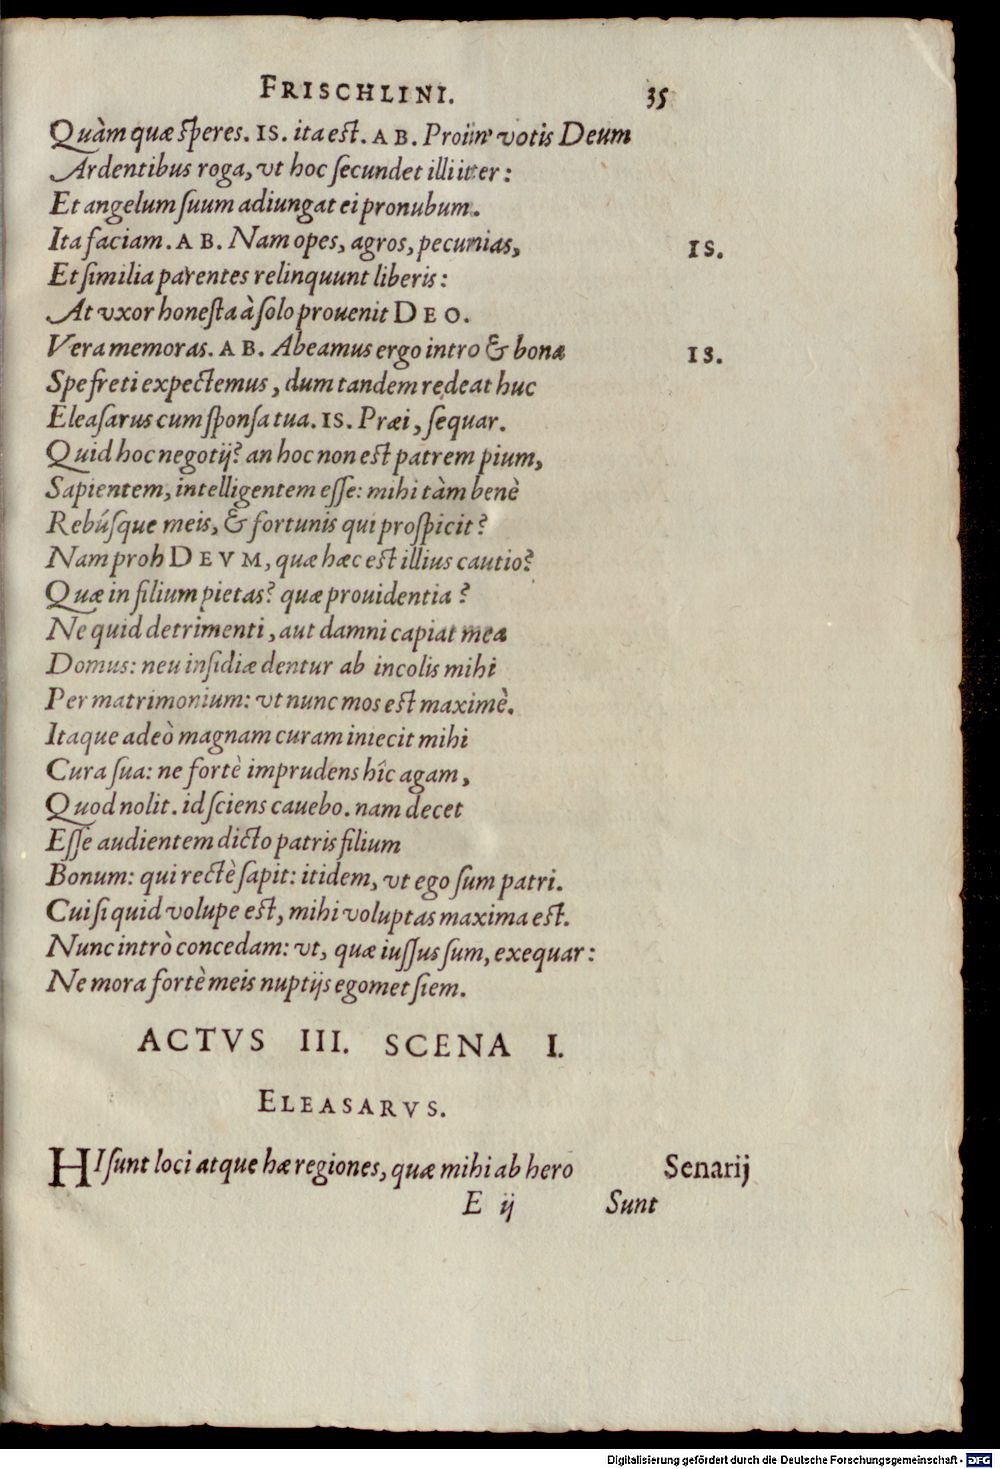 FRISCHLINI. 35
Quàm quæ speres. IS. ita est. AB. votis Deum
Ardentibus roga, vt hoc secundet illi iter:
Et angelum suum adiungat ei pronubum.
Ita faciam. AB. Nam opes, agros, pecunias, IS.
Et similia parentes relinquunt liberis:
At vxor honesta à solo prouenit DEO.
Vera memoras. AB. Abeamus ergo intro & bonæ IS.
Spe freti expectemus, dum tandem redeat huc
Eleasarus cum sponsa tua. IS. Præi, sequar.
Quid hoc negotij? an hoc non est patrem pium,
Sapientem, intelligentem esse: mihi tàm benè
Rebúsque meis, & fortunis qui prospicit?
Nam proh DEVM, quæ hæc est illius cautio?
Quæ in filium pietas? quæ prouidentia?
Ne quid detrimenti, aut damni capiat mea
Domus: neu insidiæ dentur ab incolis mihi
Per matrimonium: vt nunc mos est maximè.
Itaque adeò magnam curam iniecit mihi
Cura sua: ne fortè imprudens hîc agam,
Quod nolit. id sciens cauebo. nam decet
Esse audientem dicto patris filium
Bonum: qui rectè sapit: itidem, vt ego sum patri.
Cui si quid volupe est, mihi voluptas maxima est.
Nunc intrò concedam: vt, quæ iussus sum, exequar:
Ne mora fortè meis nuptijs egomet siem.
ACTVS III. SCENA I.
ELEASARVS.
HI sunt loci atque hæ regiones, quæ mihi ab hero Senarij
E ij Sunt
Digitalisierung gefördert durch die Deutsche Forschungsgemeinschaft - DFG